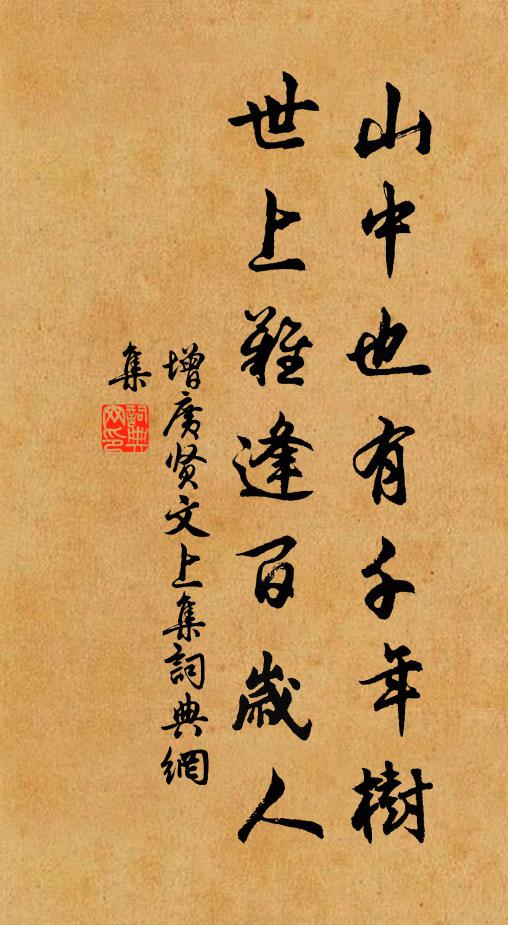 山中也有千年樹
世上難逢百歲人
增廣賢文上集詞典網
集
詞典網印